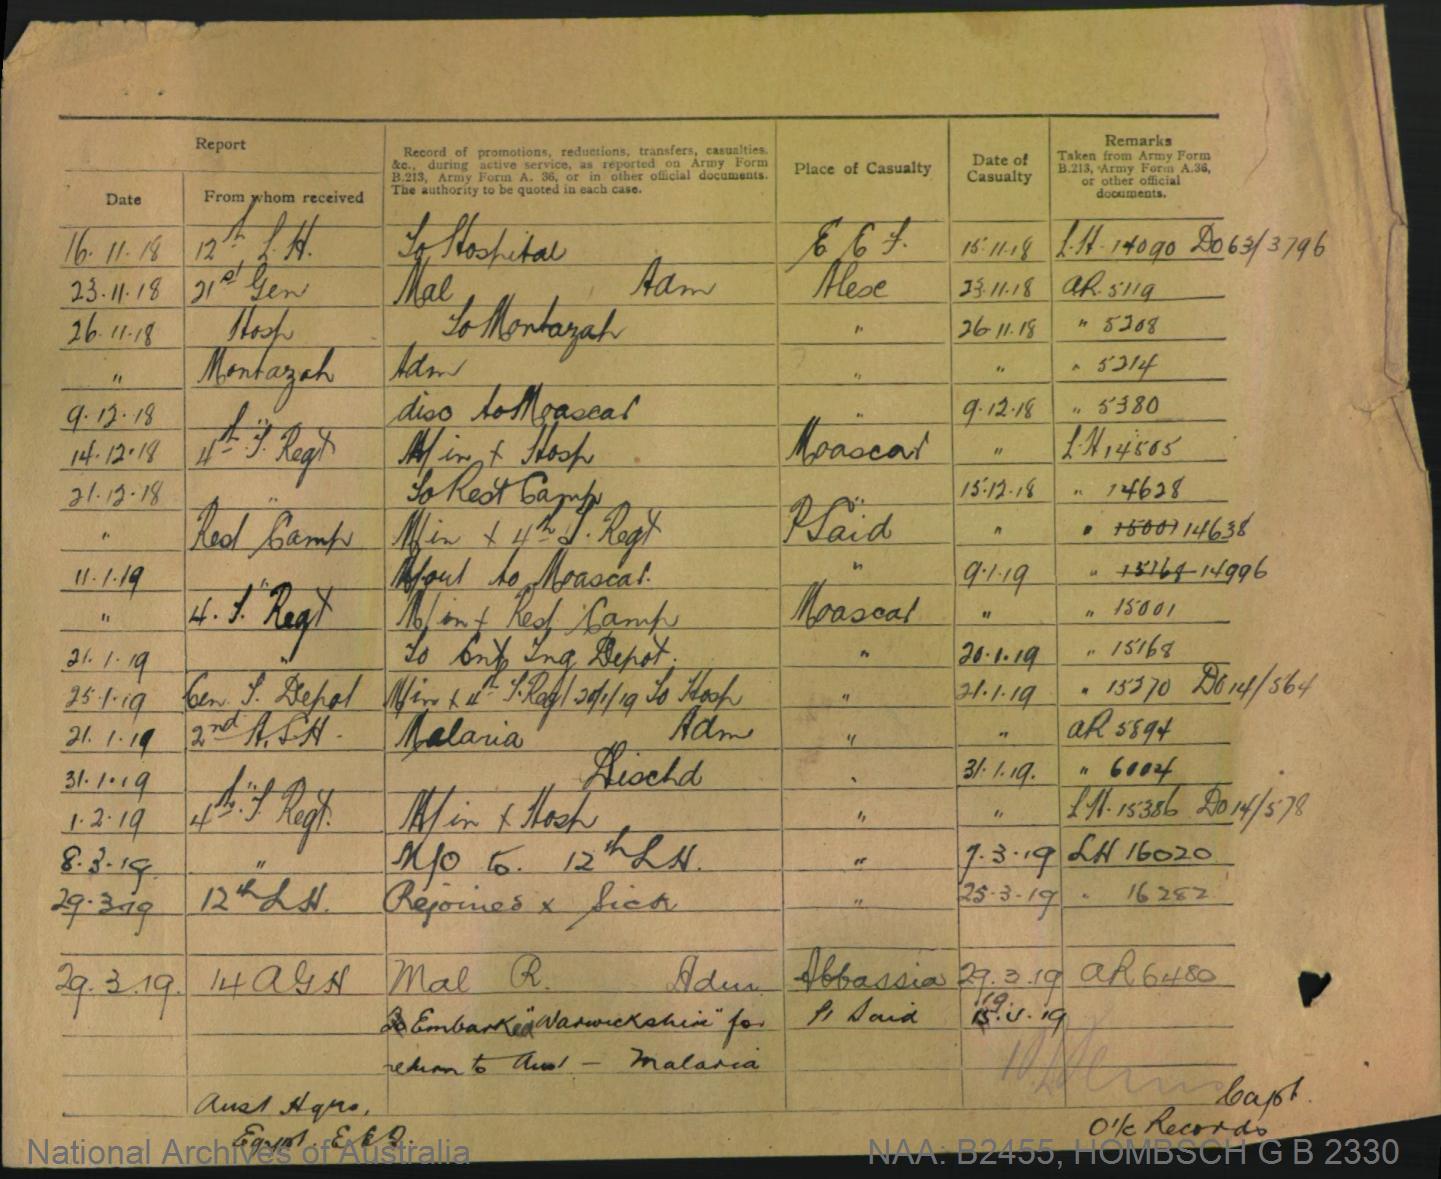 Report
Record of promotions, reductions, transfers, casualties, &c., during active service, as reported on Army Form B.213, Army Form A. 36, or in other official documents. The authority to be quoted in each case.
Place of Casualty
Date of Casualty
Remarks
Taken from Army Form B.213, Army Form A.36, or other official documents.
Date
From whom received
16.11.18 12th L.H. To Hospital E E F. 15.11.18 L.H. 14090 DO 63/3796
23.11.18 21st Gen Mal Adm Alex 23.11.18 AR. 5119
26.11.18 Hosp To Montazah " 26.11.18 " 5208
" Montazah Adm " " " 5214
9.12.18 " disc to Moascar " 9.12.18 " 5380
14.12.18 4th T. Regt M/in x Hosp Moascar " L.H 14505
21.12.18 " To Rest Camp " 15.12.18 " 14628
" Rest Camp M/in x 4th T. Regt P Said " " 15001 14638
11.1.19 " M/out to Moascar. " 9.1.19 " 15168 14996
" 4. T. Regt M/in x Rest Camp Moascar " " 15001
21.1.19 " To Trg Depot. " 20.1.19 " 15168
25.1.19 T. Depot M/in x 4th T. Regt 20/1/19 To Hosp " 21.1.19 " 15270 DO 14/564
21.1.19 2nd A.S.H. Malaria Adm " " AR 5894
31.1.19 " Dischd " 31.1.19. " 6004
1.2.19 4th T. Regt. M/in x Hosp " " L.H. 15386 DO 14/578
8.3.19 " M/O to. 12th L.H. " 7.3.19 LH 16020
29.3.19 12th L.H. Rejoines x Sick " 25.3.19 " 16282
29.3.19. 14 AGH Mal R. Adm Abbassia 29.3.19 AR 6480
Embarked "Warwickshire" for Pt Said
return to Aust — Malaria
Aust Hqrs, Capt.
Egypt. O i/c Records
National Archives of Australia NAA: B2455, HOMBSCH G B 2330